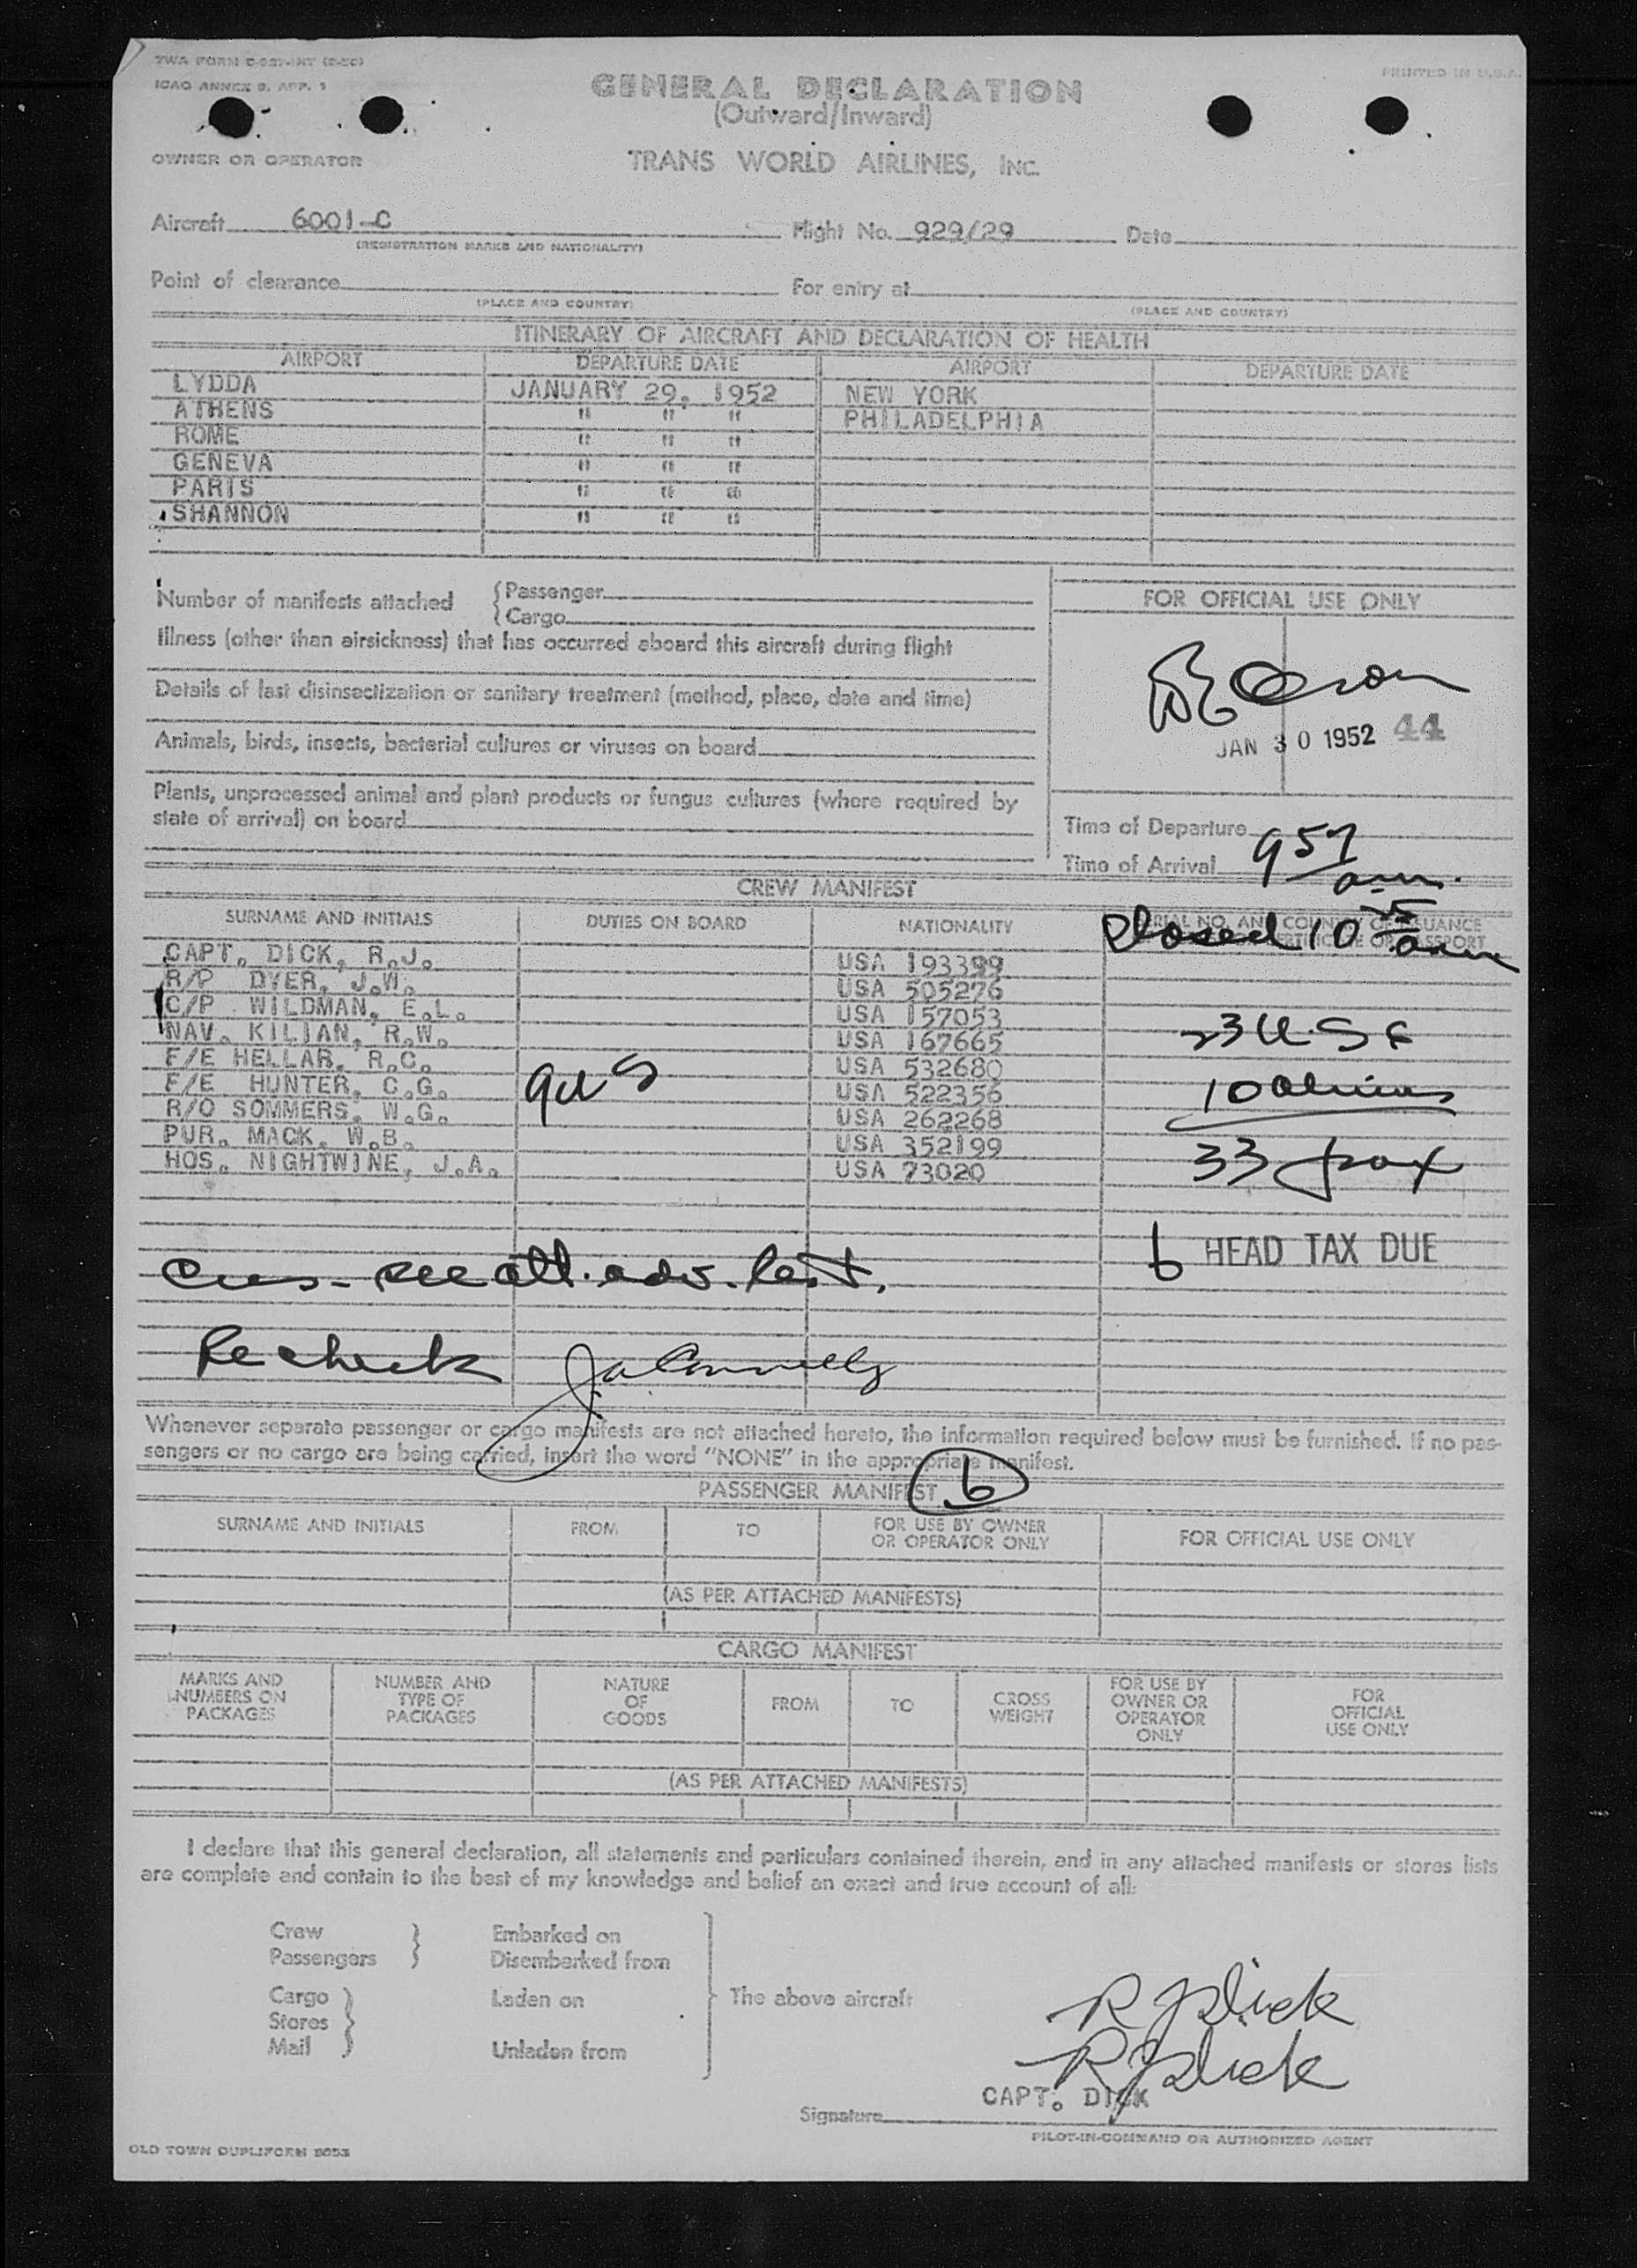 TWA FORM C-027-INT (2-50)
ICAO ANNEX 9, APP. 1
PRINTED IN U.S.A.
GENERAL DECLARATION
(Outward/Inward)
OWNER OR OPERATOR
TRANS WORLD AIRLINES, INC.
Aircraft 6001-C Flight No. 929/29 Date
(REGISTRATION MARKS AND NATIONALITY)
Point of clearance For entry at
(PLACE AND COUNTRY) (PLACE AND COUNTRY)
ITINERARY OF AIRCRAFT AND DECLARATION OF HEALTH
AIRPORT DEPARTURE DATE AIRPORT DEPARTURE DATE
LYDDA JANUARY 29, 1952 NEW YORK
ATHENS " " " PHILADELPHIA
ROME " " "
GENEVA " " "
PARIS " " "
SHANNON " " "
Number of manifests attached { Passenger
{ Cargo
FOR OFFICIAL USE ONLY
Illness (other than airsickness) that has occurred aboard this aircraft during flight
Details of last disinsectization or sanitary treatment (method, place, date and time)
JAN 30 1952 44
Animals, birds, insects, bacterial cultures or viruses on board
Plants, unprocessed animal and plant products or fungus cultures (where required by
state of arrival) on board
Time of Departure
Time of Arrival 9 57 am.
CREW MANIFEST
SURNAME AND INITIALS DUTIES ON BOARD NATIONALITY SERIAL NO. AND COUNTRY OF ISSUANCE
CERTIFICATE OR PASSPORT
Closed 10 05 am
CAPT. DICK, R.J. USA 193399
R/P DYER, J.W. USA 505276
C/P WILDMAN, E.L. USA 157053
NAV. KILIAN, R.W. USA 167665
F/E HELLAR, R.C. USA 532680
F/E HUNTER, C.G. USA 522356
R/O SOMMERS, W.G. USA 262268
PUR. MACK, W.B. USA 352199
HOS. NIGHTWINE, J.A. USA 73020
9 US
23 U.S C
10 aliens
33 pax
6 HEAD TAX DUE
Crew - see att. adv. list.
Recheck JA Connelly
Whenever separate passenger or cargo manifests are not attached hereto, the information required below must be furnished. If no pas-
sengers or no cargo are being carried, insert the word "NONE" in the appropriate manifest.
PASSENGER MANIFEST 6
SURNAME AND INITIALS FROM TO FOR USE BY OWNER OR OPERATOR ONLY FOR OFFICIAL USE ONLY
(AS PER ATTACHED MANIFESTS)
CARGO MANIFEST
MARKS AND NUMBERS ON PACKAGES NUMBER AND TYPE OF PACKAGES NATURE OF GOODS FROM TO CROSS WEIGHT FOR USE BY OWNER OR OPERATOR ONLY FOR OFFICIAL USE ONLY
(AS PER ATTACHED MANIFESTS)
I declare that this general declaration, all statements and particulars contained therein, and in any attached manifests or stores lists
are complete and contain to the best of my knowledge and belief an exact and true account of all:
Crew } Embarked on
Passengers } Disembarked from
Cargo } Laden on The above aircraft
Stores
Mail } Unladen from
R J Dick
R J Dick
CAPT. DICK
Signature
PILOT-IN-COMMAND OR AUTHORIZED AGENT
OLD TOWN DUPLIFORM 8053